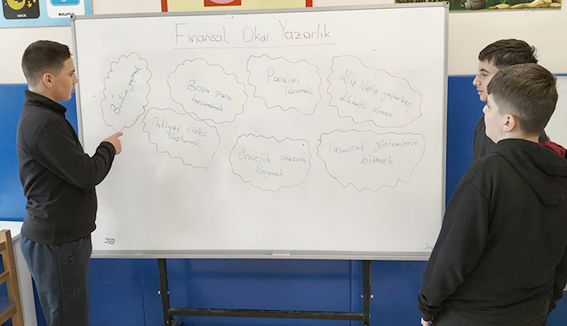 Finansal Okur Yazarlık
Birikim yapmak
Boşa para
harcamamak
Paraları
tanımak
Alış Veriş yaparken
dikkatli olmak
ihtiyaç listesi
Öncelik sırasına
koymak
Tasarruf yöntemlerini
bilmek